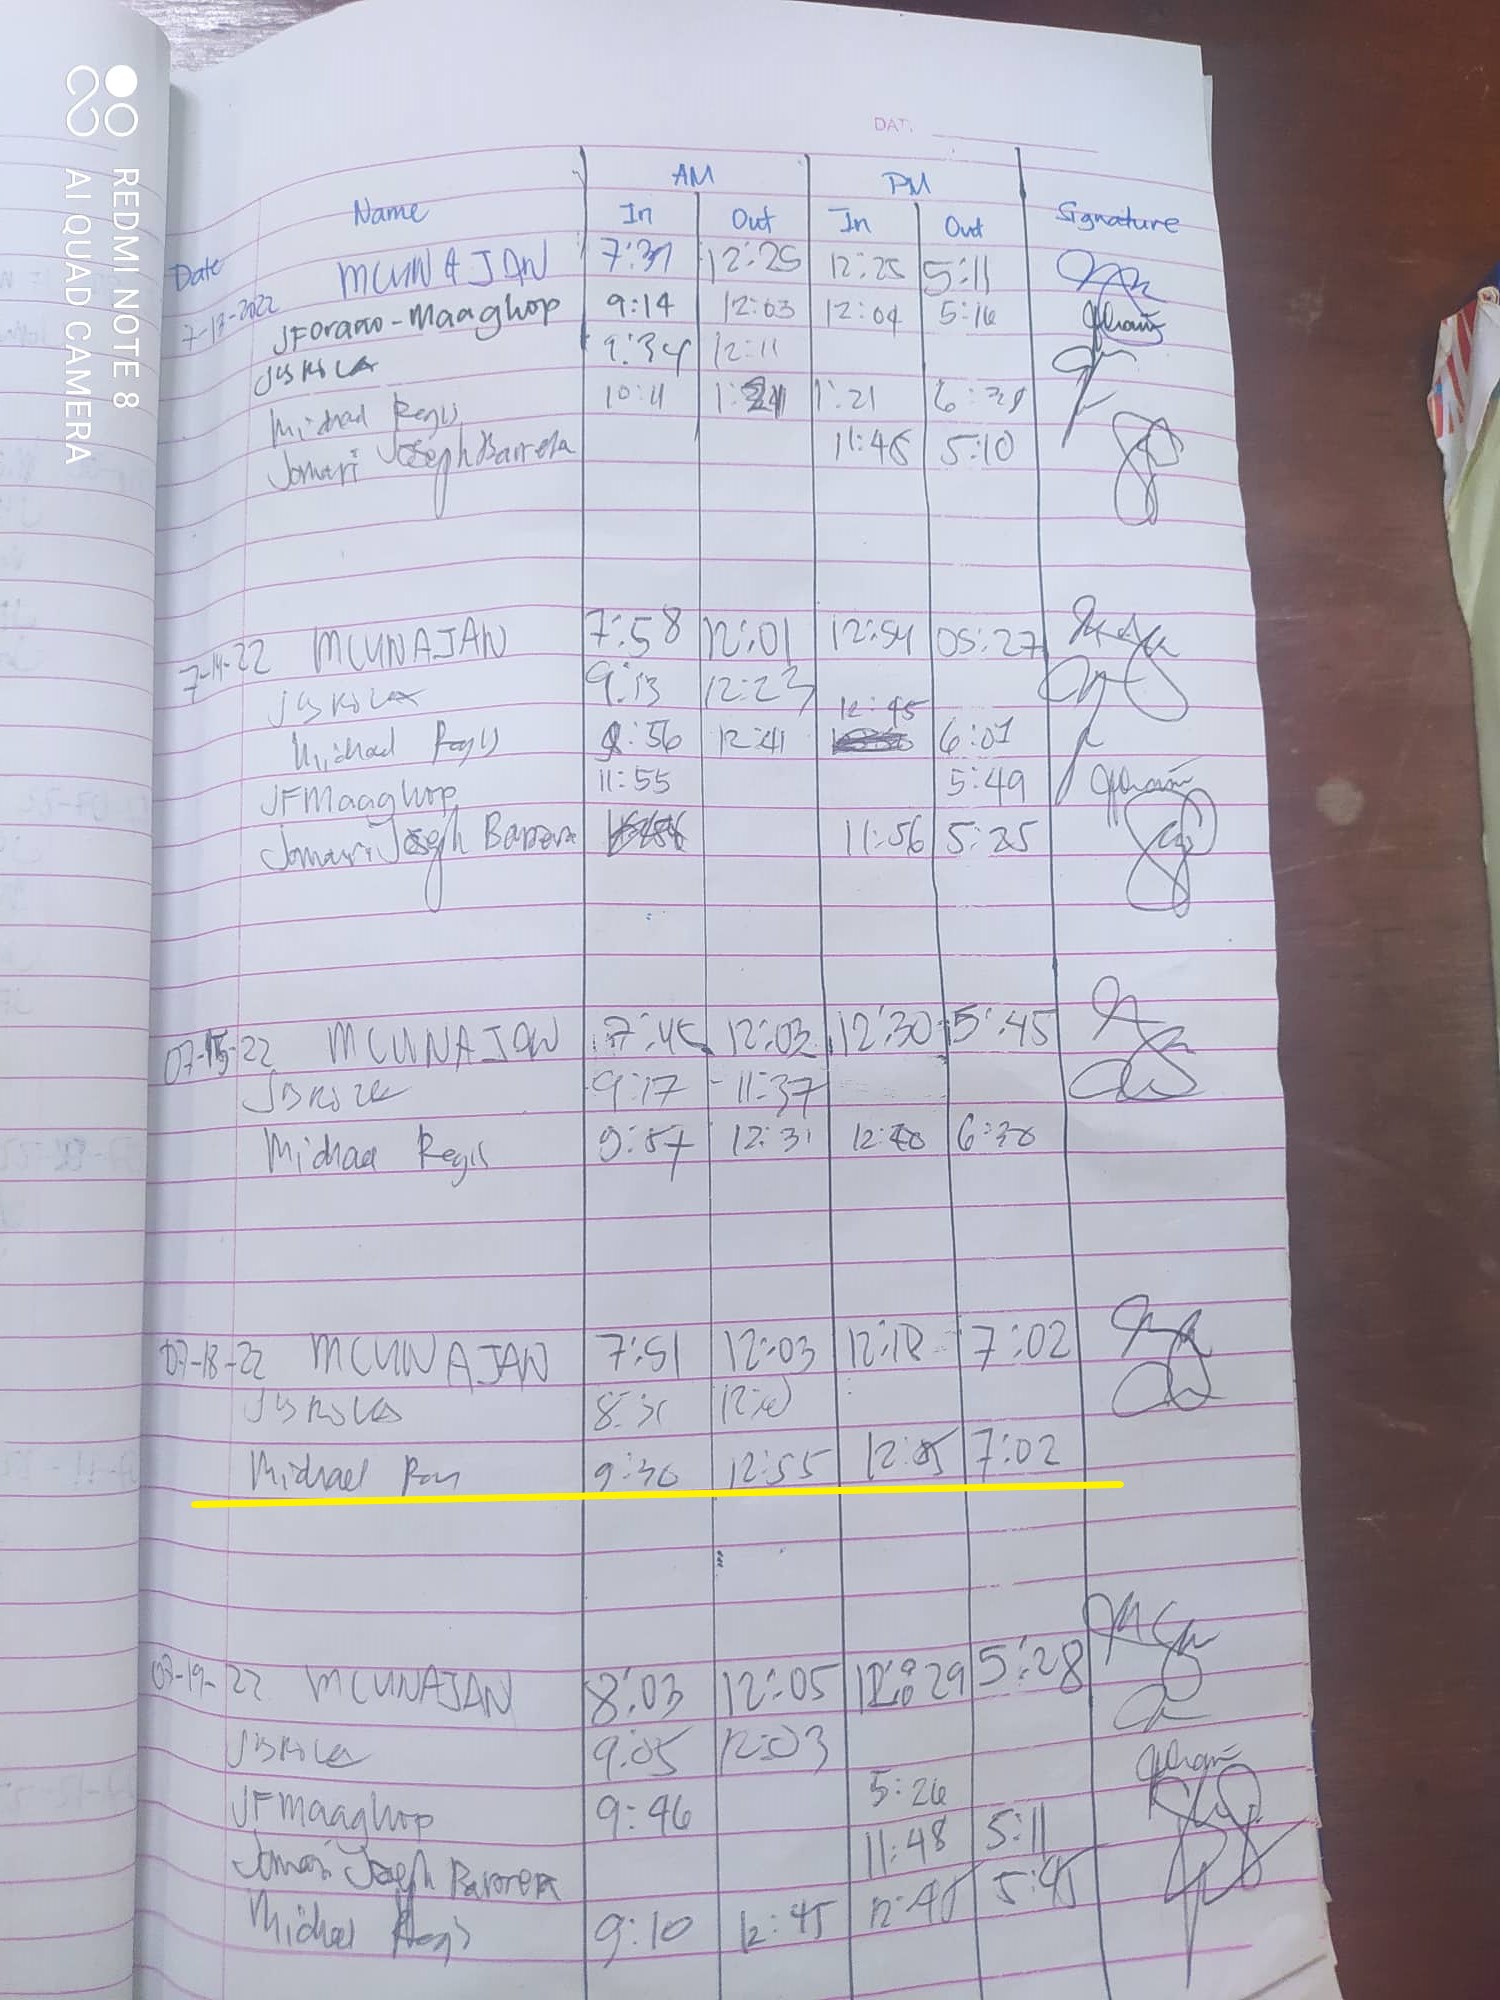 REDMI NOTE 8
AI QUAD CAMERA
DATE
AM PM
Date Name In Out In Out Signature
7-13-2022 MCUNAJAN 7:31 12:25 12:25 5:11
JForano-Maaghop 9:14 12:03 12:04 5:16
9:34 12:11
Michael Regis 10:11 1:21 1:21 6:
Jomari Joseph Barrera 11:45 5:10
7-14-22 MCUNAJAN 7:58 12:01 12:54 05:27
9:13 12:23
Michael Regis 8:56 12:41 12:45 6:01
JFMaaghop 11:55 5:49
Jomari Joseph Barrera 11:56 5:25
07-15-22 MCUNAJAN 7:45 12:03 12:30 5:45
9:17 11:37
Michael Regis 9:57 12:31 6:30
07-18-22 MCUNAJAN 7:51 12:03 12:18 7:02
8:31
Michael 9:30 12:55 7:02
07-19-22 MCUNAJAN 8:03 12:05 12:29 5:28
9:05 12:03
JFMaaghop 9:46 5:26
Jomari Joseph Barrera 11:48 5:11
Michael Regis 9:10 12:45 12:45 5:45